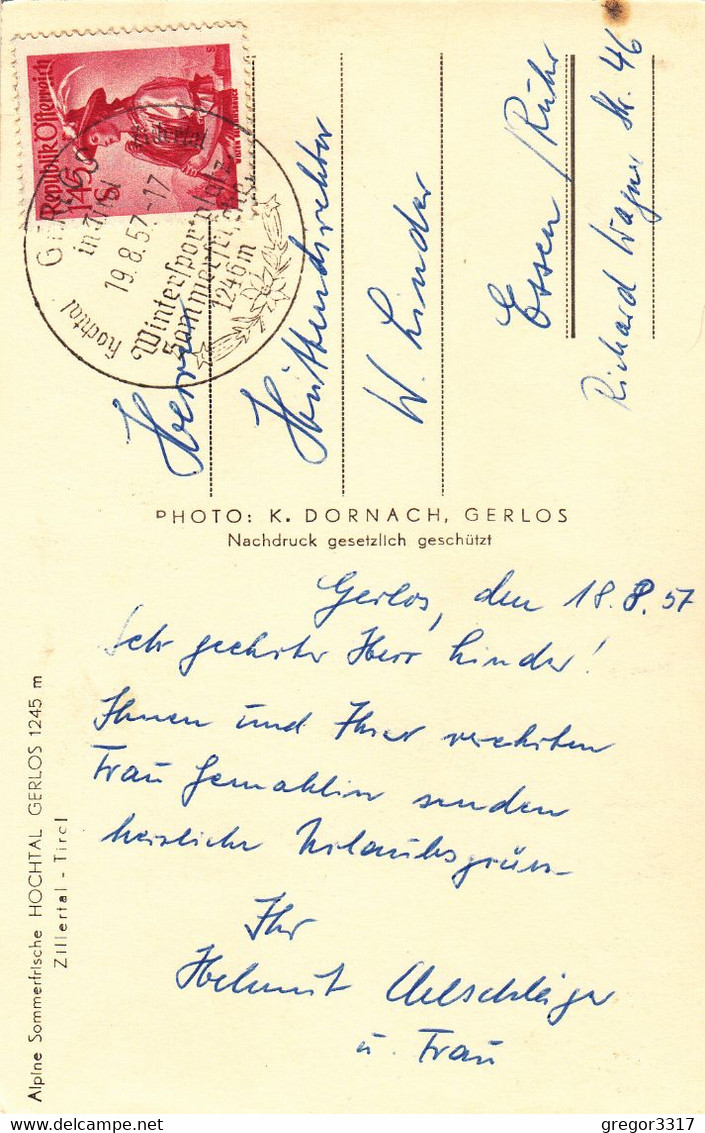 Republik Österreich
1.45 S
GERLOS
in Tirol
Zillertal
19.8.57-17
Hochtal
Wintersportplatz
Sommerfrische
1246 m
Herrn
Hüttendirektor
W. Linder
Essen / Ruhr
Richard Wagner Str. 46
PHOTO: K. DORNACH, GERLOS
Nachdruck gesetzlich geschützt
Gerlos, den 18.8.57
Sehr geehrter Herr Linder!
Ihnen und Ihrer verehrten
Frau Gemahlin senden
herzliche Urlaubsgrüsse
Ihr
Helmut Oelschläger
u. Frau
Alpine Sommerfrische HOCHTAL GERLOS 1245 m
Zillertal - Tirol
gregor3317